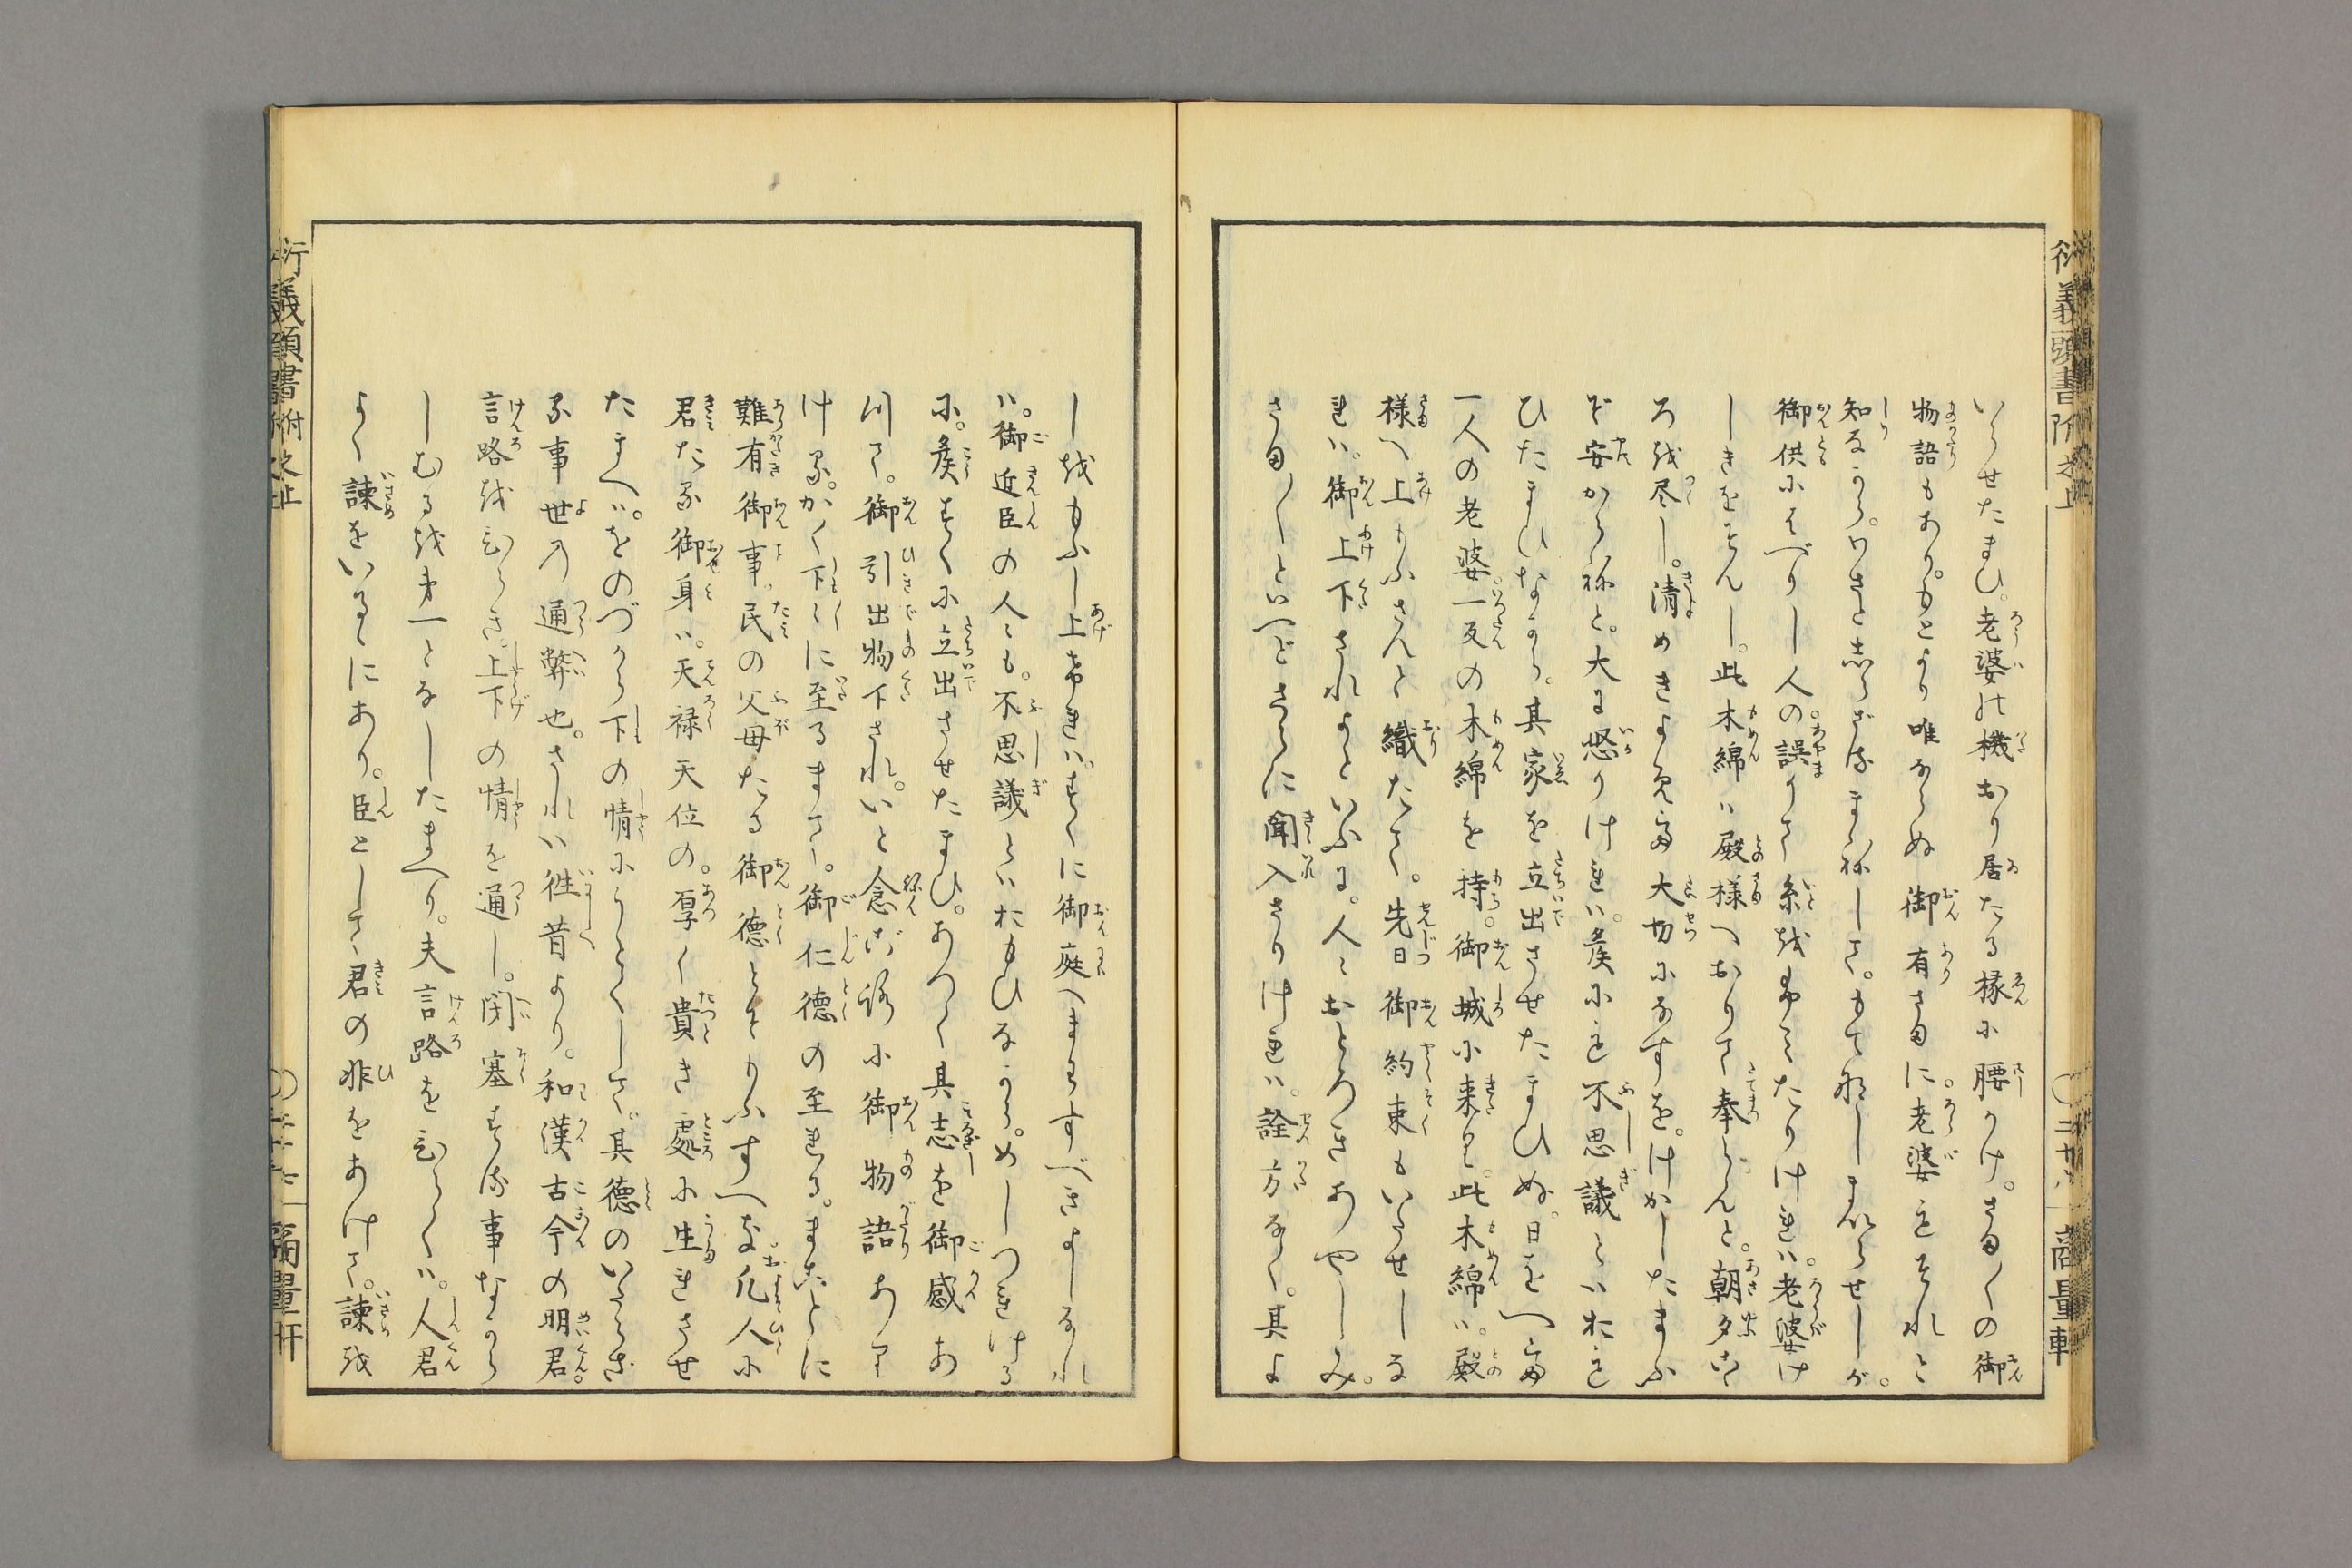 いらせたまひ。老婆の機おり居たる椽に腰かけ。さま〴〵の御
物語もあり。もとより唯ならぬ御有さまに。老婆もそれと
知ながら。わざと志らざるまねしして。もて那しまゐらせしが。
御供にはべりし人の。誤りて糸をふみたりければ。老婆け
しきをそんし。此木綿ハ殿様へおりて奉らんと。朝夕こゝ
ろを尽し。清めきよめて大切になすを。けがしたまふ
ぞ安からねと。大に怒りければ。侯にも不思議とハおも
ひたまひながら。其家を立出させたまひぬ。日をへて
一人の老婆一反の木綿を持。御城に来り。此木綿ハ。殿
様へ上もふさんと織たて。先日御約束もいたせしな
れハ。御上下されよといふに。人々おどろきあやしみ。
さま〴〵といへどさらに聞入ざりけれハ。詮方なく。其よ
しをもふし上けれハ。すぐに御庭へまわすべきよしなれ
ハ。御近臣の人々も。不思議とハおもひながら。めしつれける
に。侯すぐに立出させたまひ。あつく其志を御感あ
りて。御引出物下され。いと念ごろに御物語あり
ける。かく下々に至るまで。御仁徳の至れる。まことに
難有御事。民の父母たる御徳ともふすべき。凡人に
君たる御身ハ。天禄天位の。厚く貴き處に生れさせ
たまへハ。をのづから下の情にうとくして。其徳のいたらざ
る事世の通弊也。されハ徃昔より。和漢古今の明君。
言路をひらき。上下の情を通し。閉塞する事なから
しむるを第一となしたまへり。夫言路をひらくハ。人君
よく諌をいるゝにあり。臣として君の非をあけて。諌を
衍義頭書附之上
二十八
商量軒